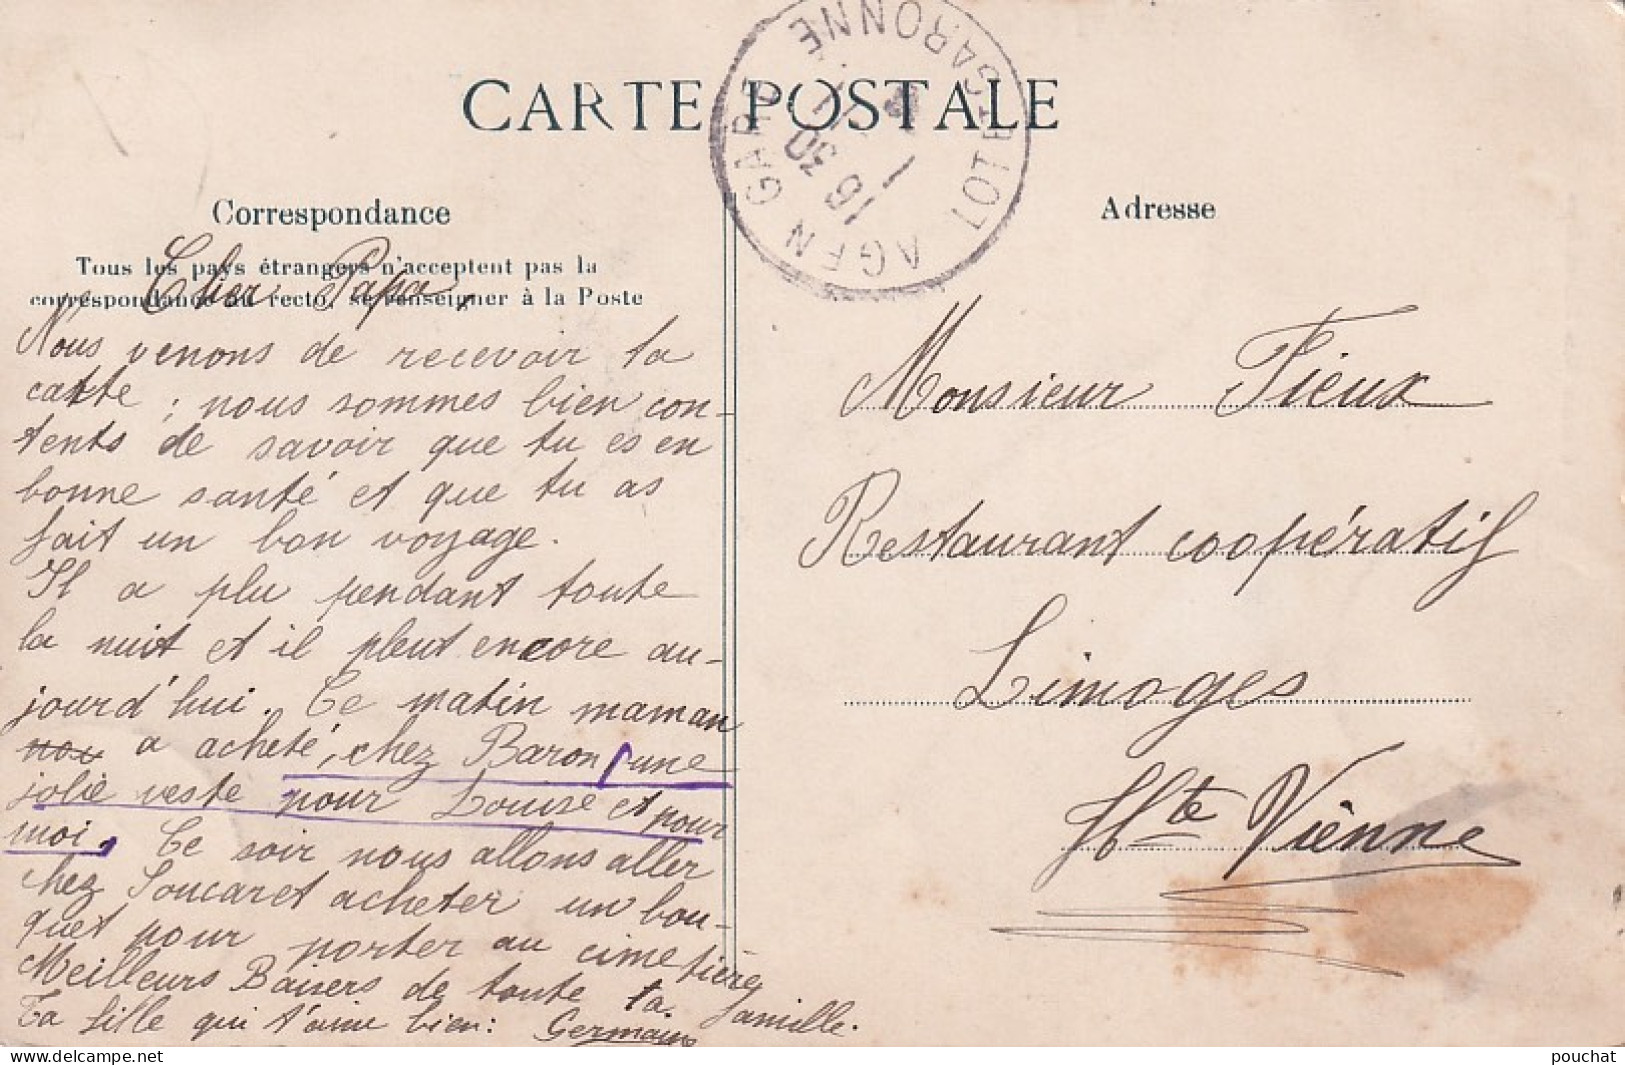 CARTE POSTALE
AGEN GARE LOT-ET-GARONNE
16 30
1
Correspondance
Tous les pays étrangers n'acceptent pas la
correspondance au recto, se renseigner à la Poste
Cher Papa,
Nous venons de recevoir ta
catte ; nous sommes bien con-
tents de savoir que tu es en
bonne santé et que tu as
fait un bon voyage.
Il a plu pendant toute
la nuit et il pleut encore au-
jourd'hui. Ce matin maman
nou a acheté, chez Baron, une
jolie veste pour Louise et pour
moi. Ce soir nous allons aller
chez Soucaret acheter un bou-
quet pour porter au cimetière
Meilleurs Baisers de toute ta famille.
Ta fille qui t'aime bien : Germaine
Adresse
Monsieur Fieux
Restaurant coopératif
Limoges
Hte Vienne
delcampe.net
pouchat